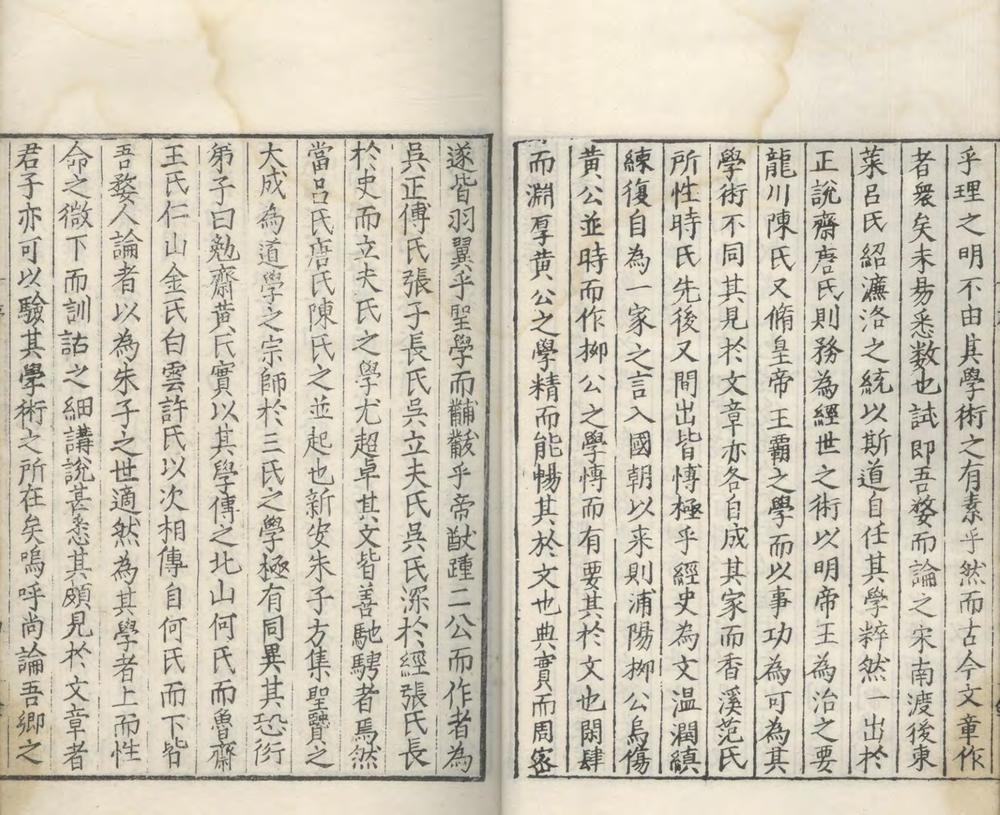 乎理之明不由其學術之有素乎然而古今文章作
者衆矣未易悉數也試即吾婺而論之宋南渡後東
萊呂氏紹濂洛之統以斯道自任其學粹然一出於
正說齋唐氏則務為經世之術以明帝王為治之要
龍川陳氏又脩皇帝王霸之學而以事功為可為其
學術不同其見於文章亦各自成其家而香溪范氏
所性時氏先後又間出皆愽極乎經史為文温潤縝
練復自為一家之言入國朝以来則浦陽栁公烏傷
黄公並時而作栁公之學愽而有要其於文也閎肆
而淵厚黄公之學精而能暢其於文也典實而周宻
遂皆羽翼乎聖學而黼黻乎帝猷踵二公而作者為
吳正傅氏張子長氏吳立夫氏吳氏深於經張氏長
於史而立夫氏之學尤超卓其文皆善馳騁者焉然
當呂氏唐氏陳氏之並起也新安朱子方集聖贒之
大成為道學之宗師於三氏之學極有同異其恐衍
弟子曰勉齋黄氏實以其學傳之北山何氏而魯齋
王氏仁山金氏白雲許氏以次相傳自何氏而下皆
吾婺人論者以為朱子之世適然為其學者上而性
命之微下而訓詁之細講說甚悉其頗見於文章者
君子亦可以驗其學術之所在矣嗚呼尚論吾鄉之